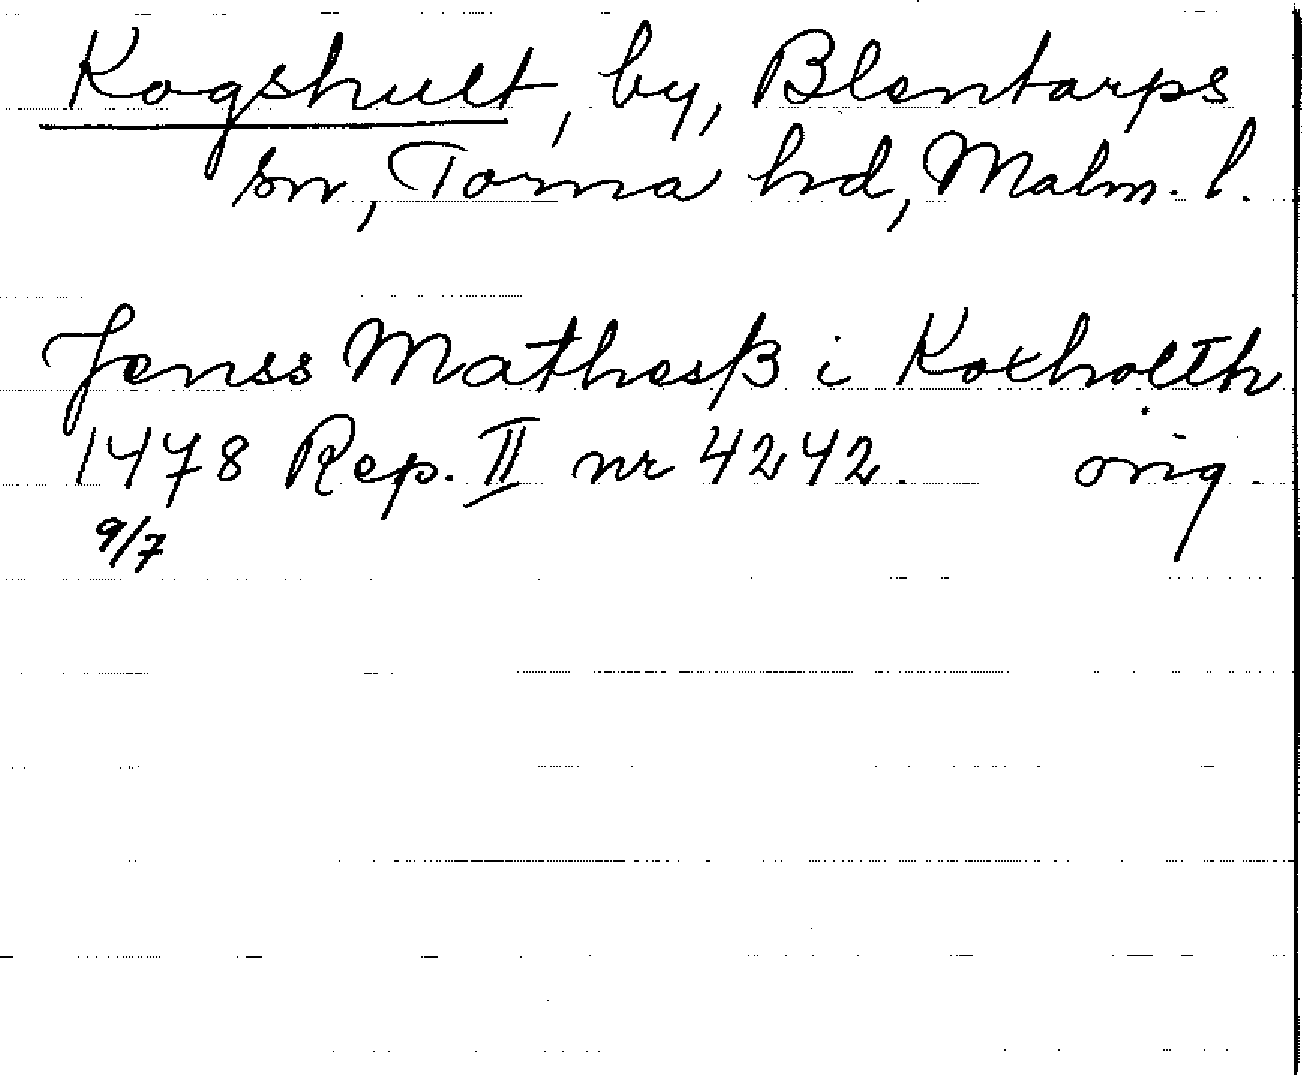 Kogshult, by, Blentarps
sn, Torna hd, Malm. l.
Jenss Mathesß i Koxholth
1478 Rep. II nr 4242. orig.
9/7